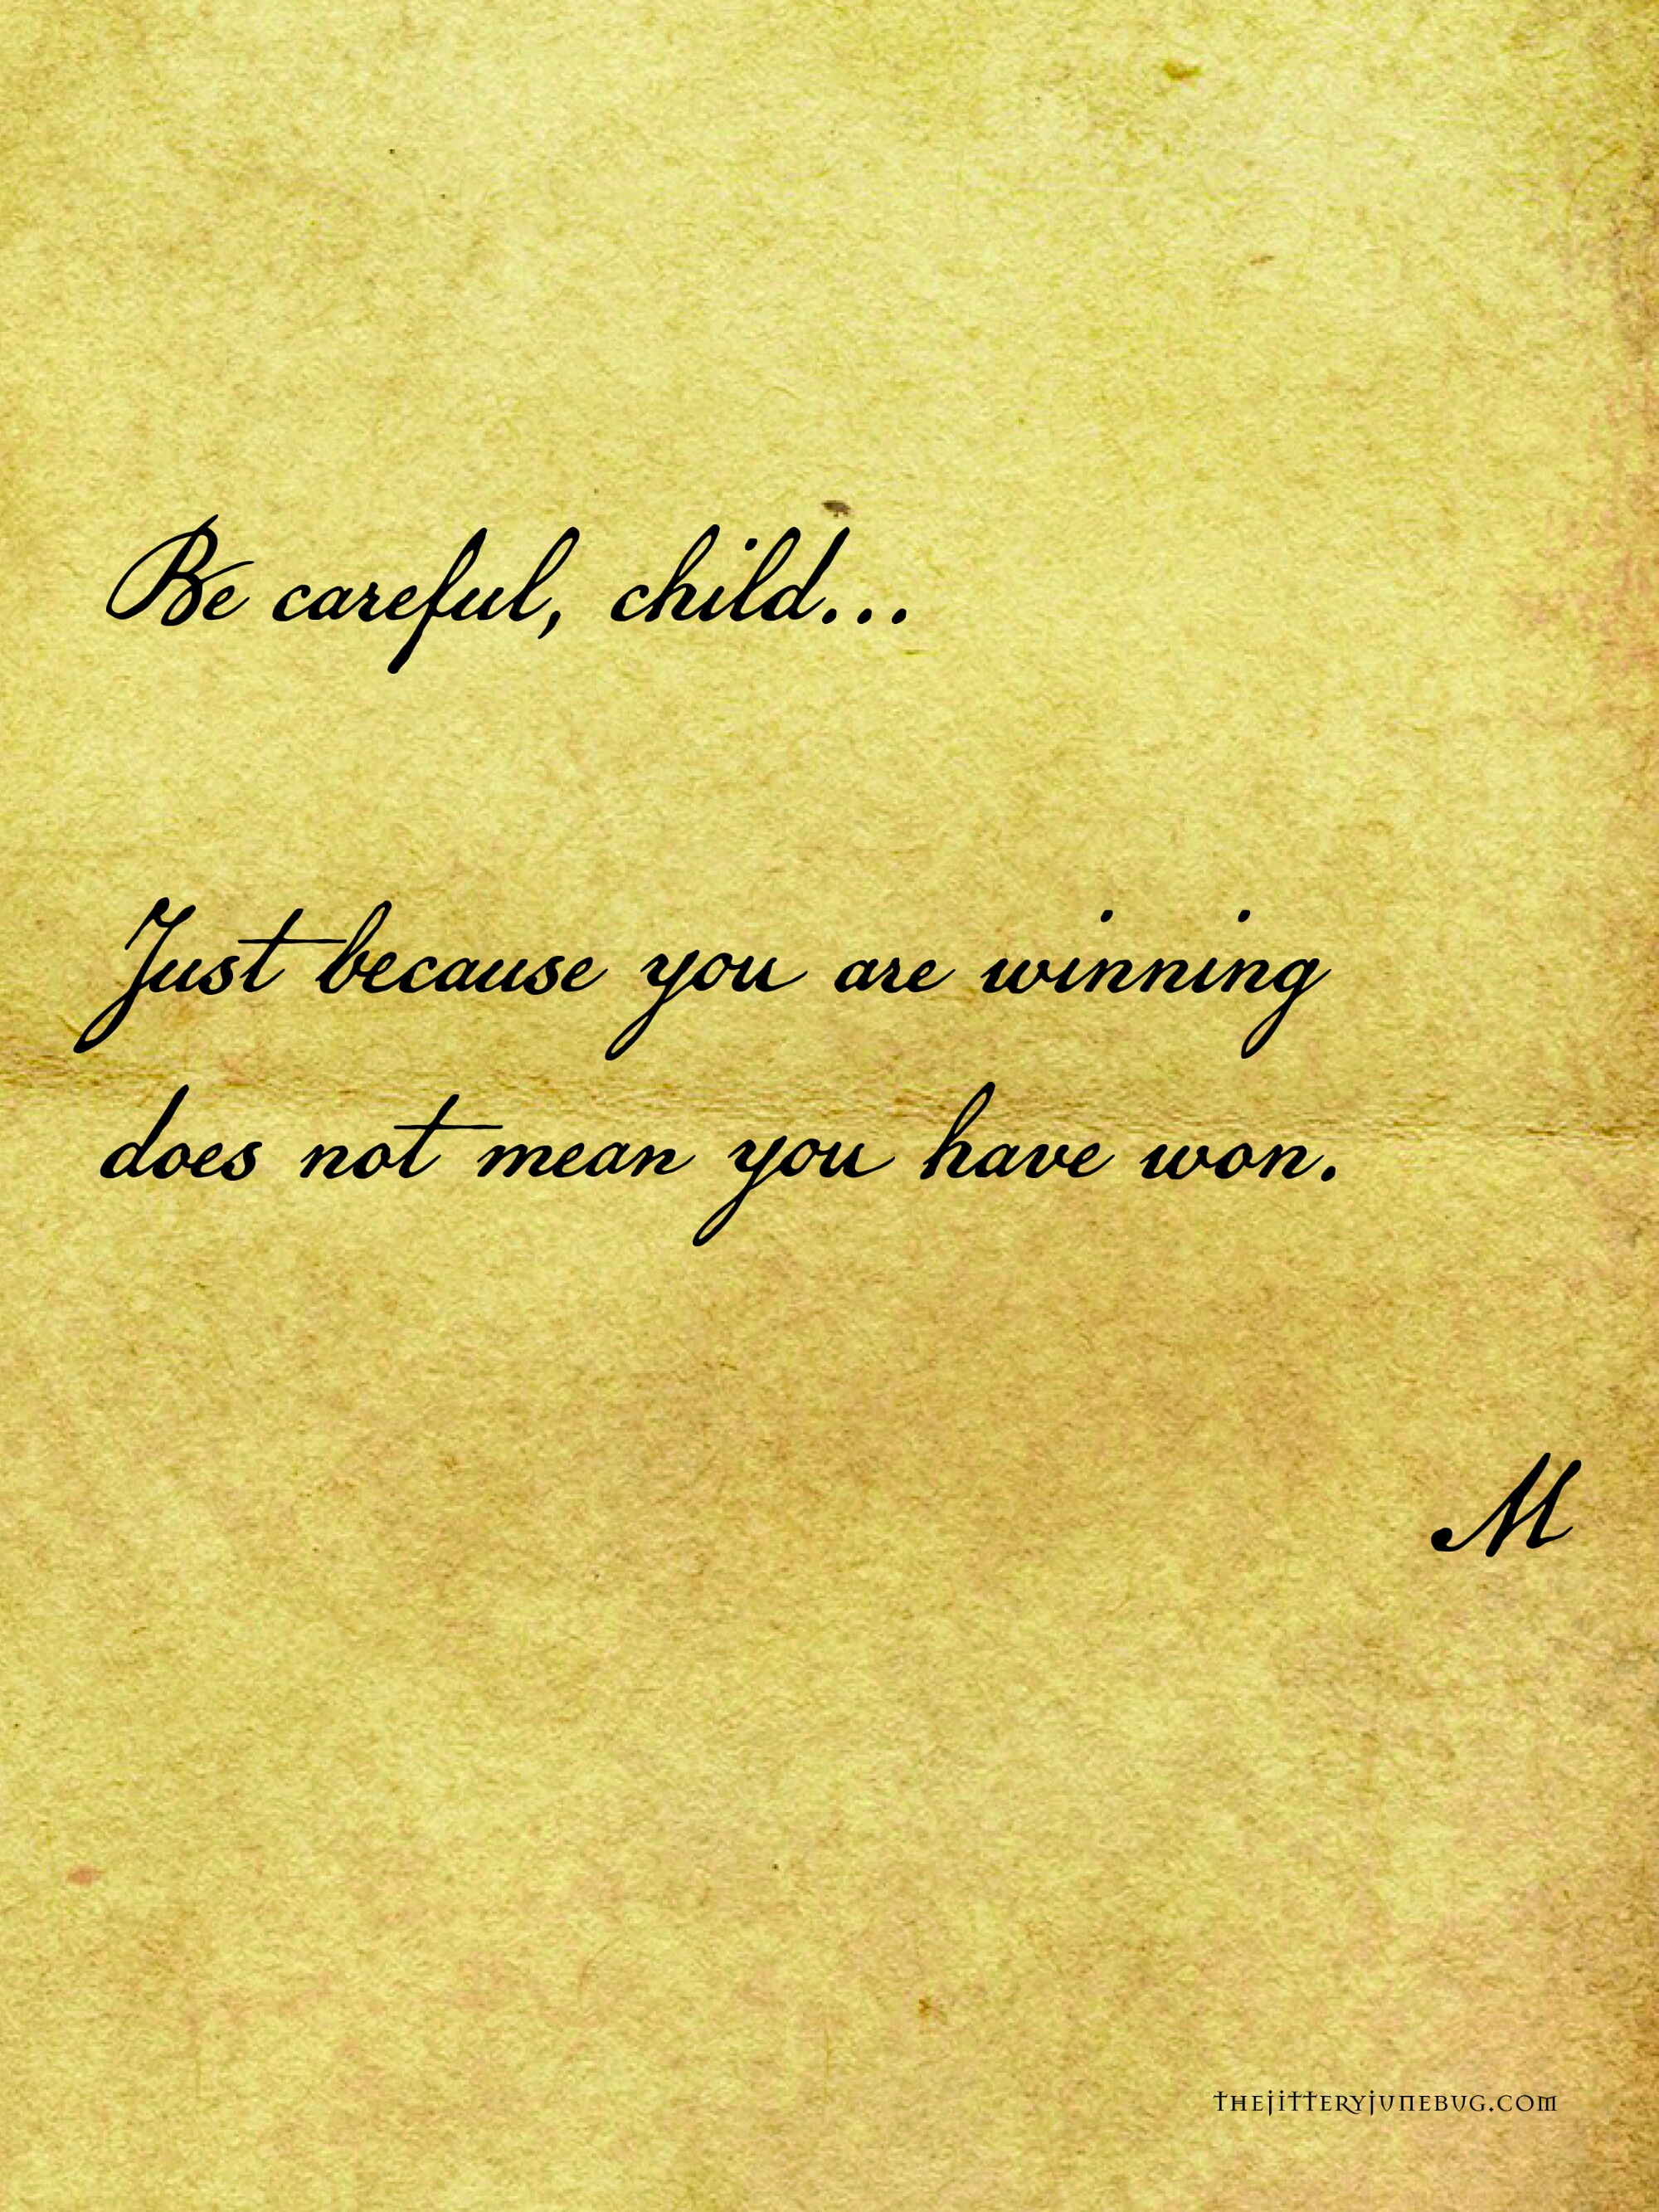 Be careful, child...
Just because you are winning
does not mean you have won.
M
THEJITTERYJUNEBUG.COM